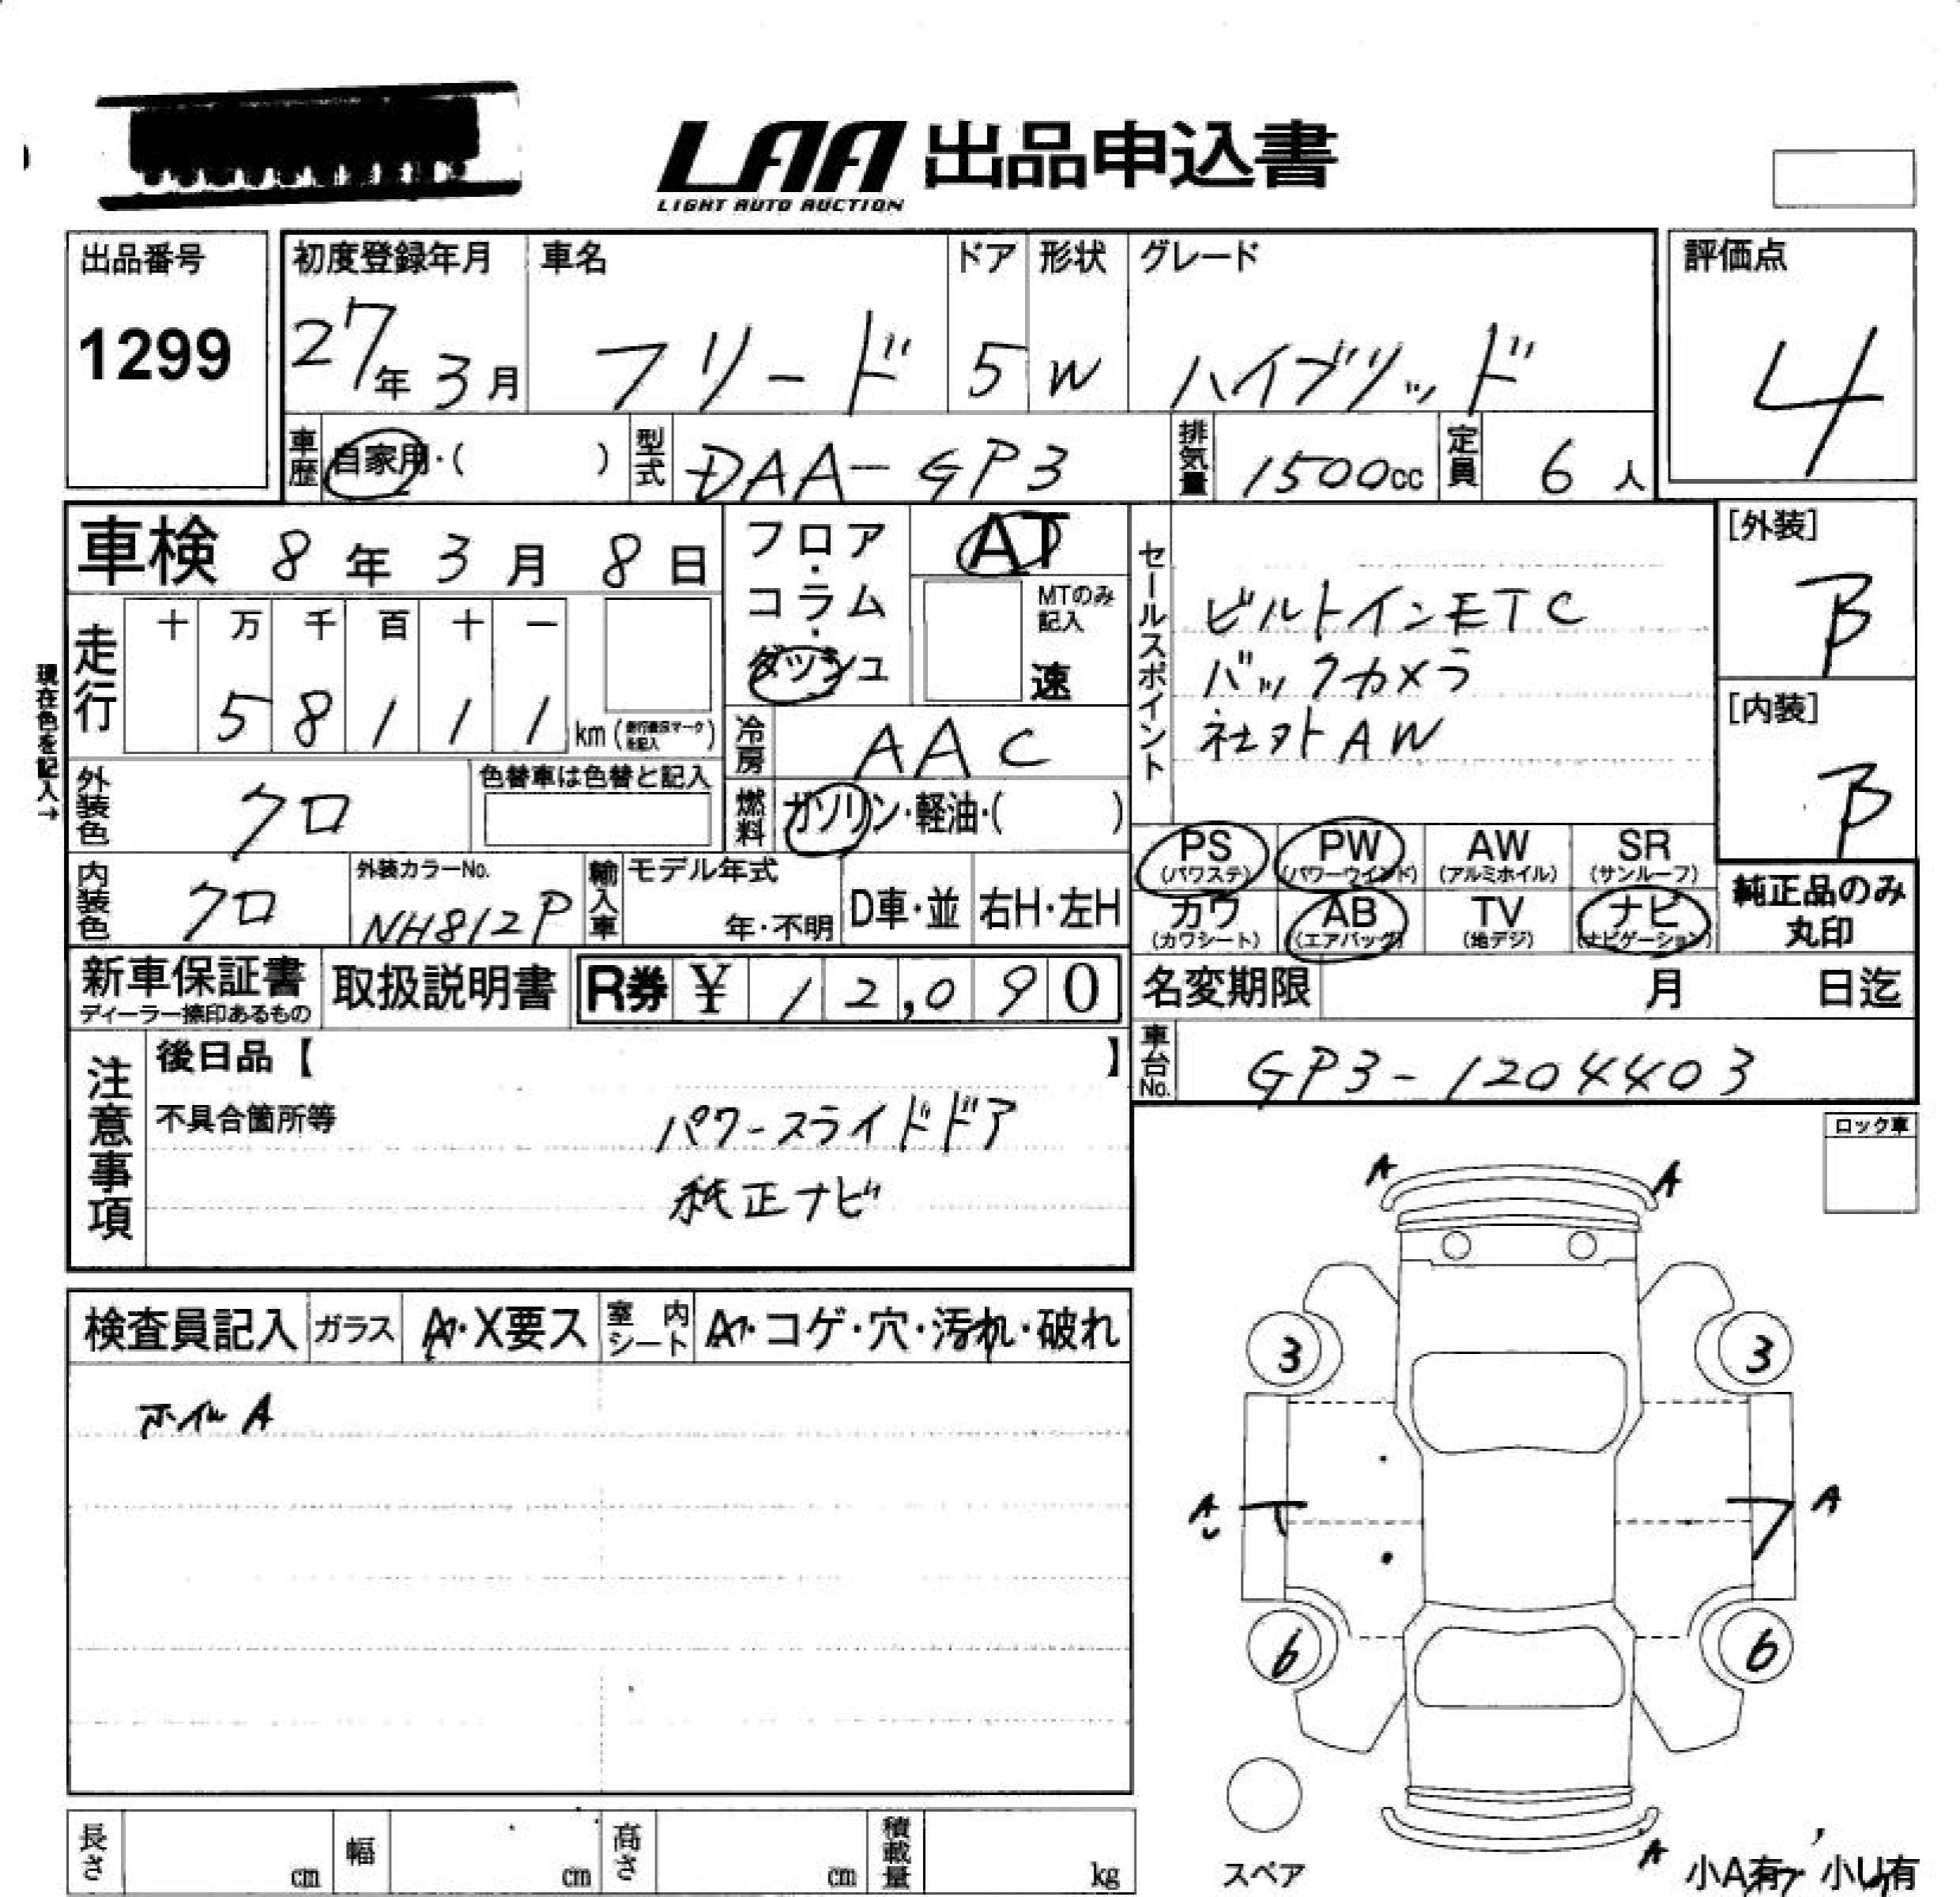 LAA 出品申込書
LIGHT AUTO AUCTION
出品番号
1299
初度登録年月
27年 3月
車名
フリード
ドア
5
形状
W
グレード
ハイブリッド
評価点
4
車歴 自家用・( )
型式 DAA-GP3
排気量 1500cc
定員 6人
車検 8年 3月 8日
フロア・コラム・ダッシュ
AT
MTのみ記入
速
セールスポイント
ビルトインETC
バックカメラ
社外AW
[外装]
B
[内装]
B
現在色を記入→
走行
十 万 千 百 十 一
5 8 1 1 1 km
冷房 AAC
外装色 クロ
色替車は色替と記入
燃料 ガソリン・軽油・( )
PS (パワステ)
PW (パワーウインド)
AW (アルミホイル)
SR (サンルーフ)
カワ (カワシート)
AB (エアバッグ)
TV (地デジ)
ナビ (ナビゲーション)
純正品のみ
丸印
内装色 クロ
外装カラーNo.
NH812P
輸入車
モデル年式
年・不明
D車・並
右H・左H
新車保証書
ディーラー捺印あるもの
取扱説明書
R券 ¥ 12,090
名変期限 月 日迄
車台No. GP3-1204403
注意事項
後日品【 】
不具合箇所等
パワースライドドア
純正ナビ
ロック車
検査員記入
ガラス
A・X要ス
室内シート
・コゲ・穴・汚れ・破れ
ホイルA
A A
3 3
A A
6 6
スペア
A
小A有 小U有
長さ cm
幅 cm
高さ cm
積載量 kg